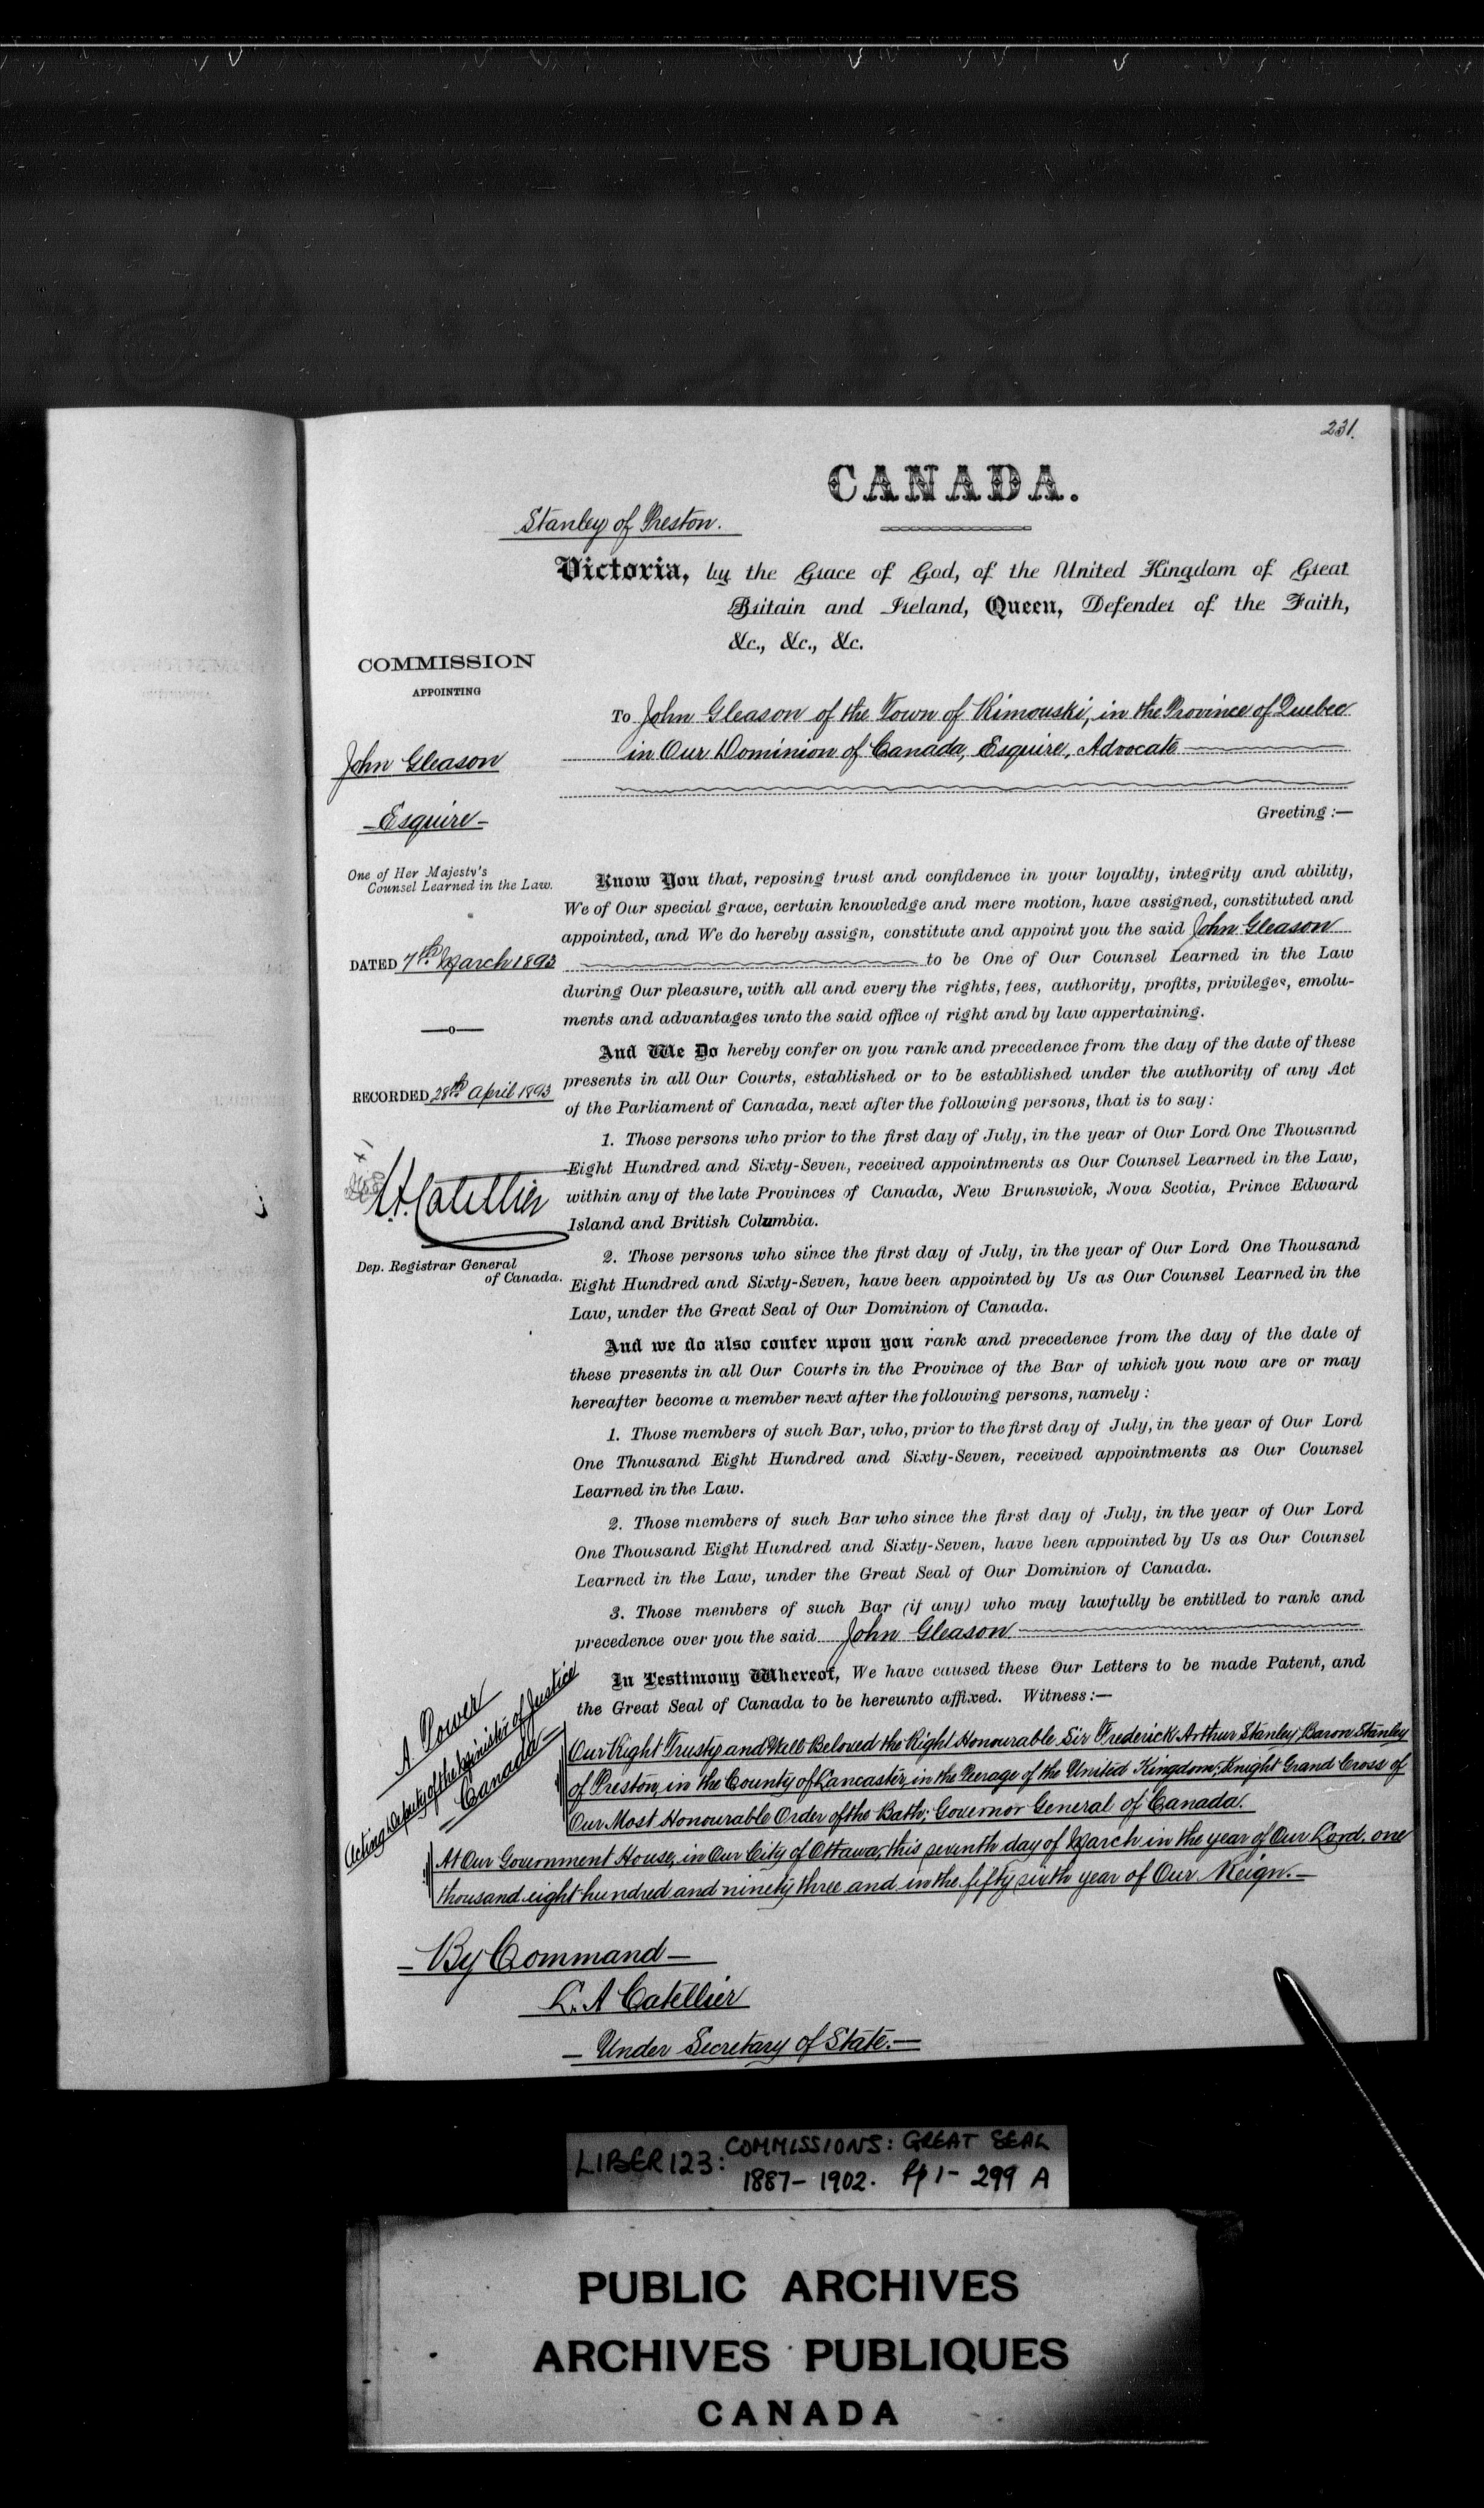 231.
CANADA.
Stanley of Preston.
Victoria, by the Grace of God, of the United Kingdom of Great
Britain and Ireland, Queen, Defender of the Faith,
&c., &c., &c.
COMMISSION
APPOINTING
John Gleason
Esquire
One of Her Majesty's
Counsel Learned in the Law.
DATED 7th March 1893
RECORDED 28th April 1893
L.A. Catellier
Dep. Registrar General
of Canada.
To John Gleason of the Town of Rimouski, in the Province of Quebec
in Our Dominion of Canada, Esquire, Advocate
Greeting :—
Know You that, reposing trust and confidence in your loyalty, integrity and ability,
We of Our special grace, certain knowledge and mere motion, have assigned, constituted and
appointed, and We do hereby assign, constitute and appoint you the said John Gleason
to be One of Our Counsel Learned in the Law
during Our pleasure, with all and every the rights, fees, authority, profits, privileges, emolu-
ments and advantages unto the said office of right and by law appertaining.
And We Do hereby confer on you rank and precedence from the day of the date of these
presents in all Our Courts, established or to be established under the authority of any Act
of the Parliament of Canada, next after the following persons, that is to say:
1. Those persons who prior to the first day of July, in the year of Our Lord One Thousand
Eight Hundred and Sixty-Seven, received appointments as Our Counsel Learned in the Law,
within any of the late Provinces of Canada, New Brunswick, Nova Scotia, Prince Edward
Island and British Columbia.
2. Those persons who since the first day of July, in the year of Our Lord One Thousand
Eight Hundred and Sixty-Seven, have been appointed by Us as Our Counsel Learned in the
Law, under the Great Seal of Our Dominion of Canada.
And we do also confer upon you rank and precedence from the day of the date of
these presents in all Our Courts in the Province of the Bar of which you now are or may
hereafter become a member next after the following persons, namely :
1. Those members of such Bar, who, prior to the first day of July, in the year of Our Lord
One Thousand Eight Hundred and Sixty-Seven, received appointments as Our Counsel
Learned in the Law.
2. Those members of such Bar who since the first day of July, in the year of Our Lord
One Thousand Eight Hundred and Sixty-Seven, have been appointed by Us as Our Counsel
Learned in the Law, under the Great Seal of Our Dominion of Canada.
3. Those members of such Bar (if any) who may lawfully be entitled to rank and
precedence over you the said John Gleason
In Testimony Whereof, We have caused these Our Letters to be made Patent, and
the Great Seal of Canada to be hereunto affixed. Witness:—
A. Power
Acting Deputy of the Minister of Justice
Canada
Our Right Trusty and Well Beloved the Right Honourable Sir Frederick Arthur Stanley, Baron Stanley
of Preston, in the County of Lancaster, in the Peerage of the United Kingdom; Knight Grand Cross of
Our Most Honourable Order of the Bath; Governor General of Canada.
At Our Government House, in Our City of Ottawa, this seventh day of March in the year of Our Lord, one
thousand eight hundred and ninety three and in the fifty sixth year of Our Reign.—
— By Command —
L. A Catellier
— Under Secretary of State.—
LIBER 123: COMMISSIONS: GREAT SEAL
1887 - 1902. Pp 1 - 299 A
PUBLIC ARCHIVES
ARCHIVES PUBLIQUES
CANADA